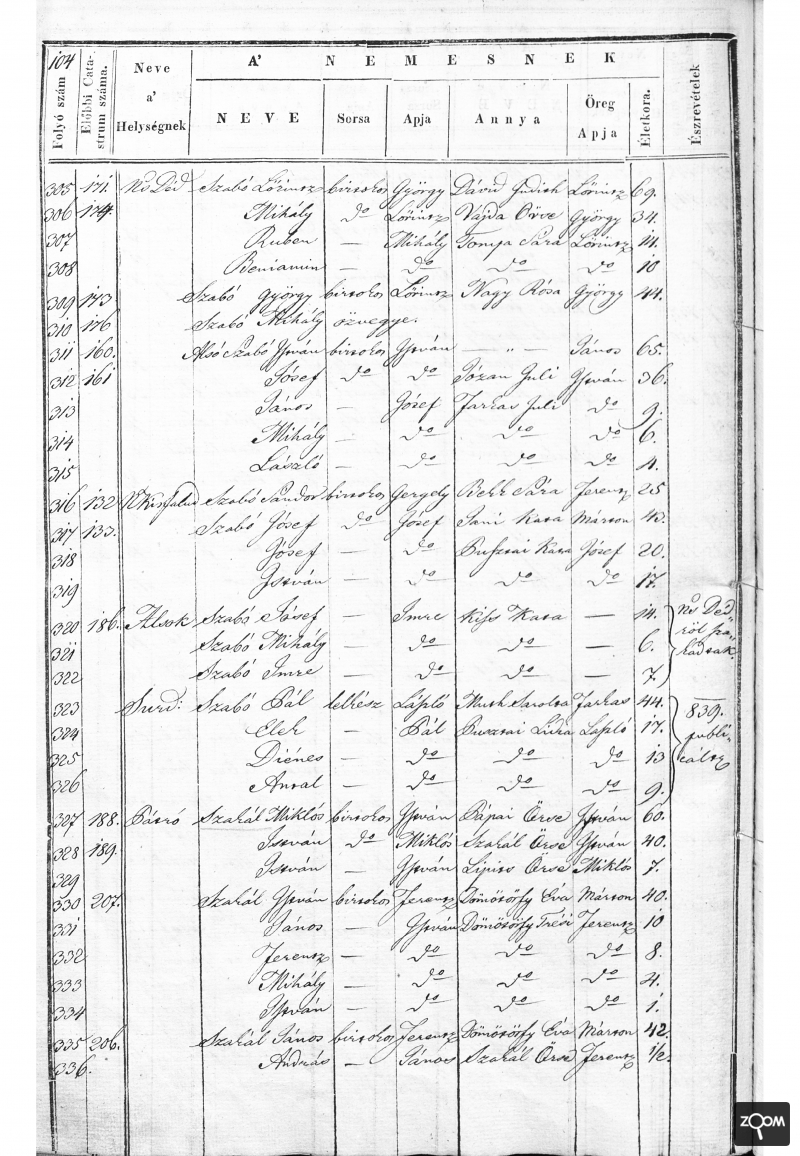 104
Folyó szám
Előbbi Cata-
strum száma.
Neve
a'
Helységnek
A' NEMESNEK
NEVE
Sorsa
Apja
Annya
Öreg
Apja
Életkora.
Észrevételek
305 171. Ns Déd Szabó Lőrintz birtokos György Dávid Judith Lőrintz 69.
306 174. Mihály do Lőrintz Vajda Örse György 34.
307 Ruben — Mihály Tompa Sára Lőrintz 14.
308 Beniamin — do do do 10
309 173 Szabó György birtokos Lőrintz Nagy Rósa György 44.
310 176 Szabó Mihály özvegye.
311 160. Alsó Szabó István birtokos István — " — János 65.
312 161 Jósef do do Józan Juli István 36.
313 János — Jósef Farkas Juli do 9.
314 Mihály — do do do 6.
315 László — do do do 4.
316 132 N Kisfalud Szabó Sándor birtokos Gergely Bekk Sára Ferentz 25
317 133. Szabó Jósef do Jósef Jani Kata Márton 43.
318 Jósef — do Pusztai Kata Jósef 20.
319 István — do do do 17.
320 186. Alsok Szabó Jósef — Imre Kiss Kata — 14.
321 Szabó Mihály — do do — 6.
322 Szabó Imre — do do — 7.
Ns Déd-
ről sza-
kadtak.
323 Surd: Szabó Pál lelkész László Muth Sarolta Farkas 44.
324 Elek — Pál Pusztai Lidia László 17.
325 Diénes — do do do 13
326 Antal — do do do 9.
839.
publi-
cáltz
327 188. Pátró Szakál Miklós birtokos István Pápai Örse István 60.
328 189. István do Miklós Szakál Örse István 40.
329 István — István Lipits Örse Miklós 7.
330 207. Szakál István birtokos Ferentz Dömötörfy Éva Márton 40.
331 János — István Dömötörfy Trési Ferentz 10
332 Ferentz — do do do 8.
333 Mihály — do do do 4.
334 István — do do do 1.
335 206. Szakál János birtokos Ferentz Dömötörfy Éva Márton 42.
336. András — János Szakál Örse Ferentz 1/2.
ZOOM